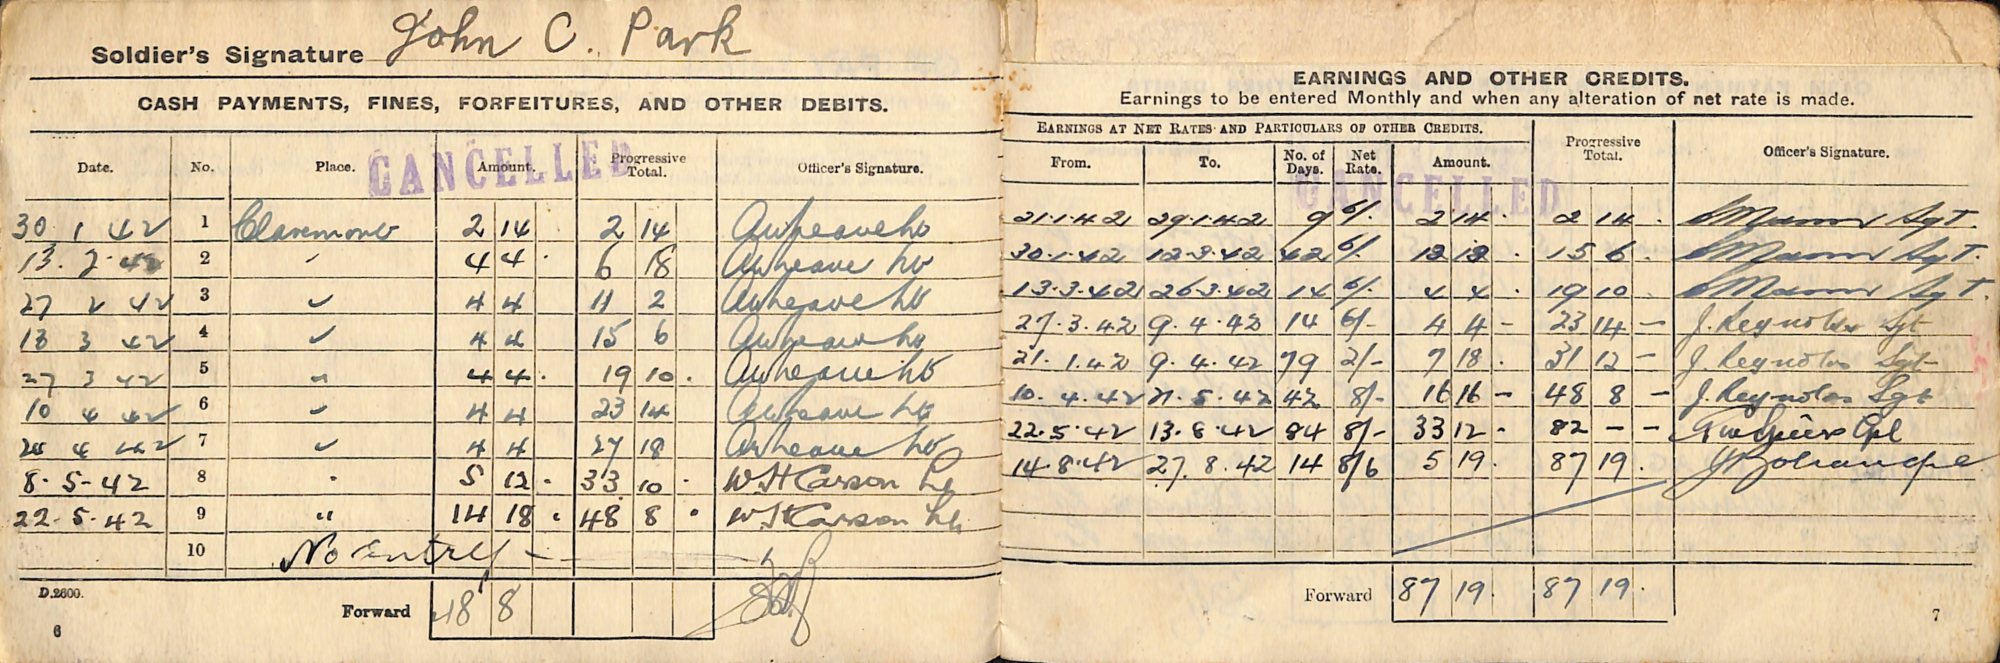 Soldier's Signature John C. Park
CASH PAYMENTS, FINES, FORFEITURES, AND OTHER DEBITS.
Date. No. Place. Amount. Progressive Total. Officer's Signature.
CANCELLED
30 1 42 1 Claremont 2 14 2 14
13. 2. 42 2 " 4 4 . 6 18
27 2 42 3 " 4 4 11 2
13 3 42 4 " 4 4 15 6
27 3 42 5 " 4 4 . 19 10 .
10 4 42 6 " 4 4 23 14
24 4 42 7 " 4 4 27 18
8. 5. 42 8 " 5 12 . 33 10 . W H Carson Lt
22. 5. 42 9 " 14 18 . 48 8 . W H Carson Lt
10 No Entry —
D.2600. Forward 48 8
6
EARNINGS AND OTHER CREDITS.
Earnings to be entered Monthly and when any alteration of net rate is made.
EARNINGS AT NET RATES AND PARTICULARS OF OTHER CREDITS. Progressive Total. Officer's Signature.
From. To. No. of Days. Net Rate. Amount.
CANCELLED
21.1.42 29.1.42 9 6/- 2 14 . 2 14 . Sgt.
30.1.42 12.3.42 42 6/- 12 12 . 15 6 . Sgt.
13.3.42 26.3.42 14 6/- 4 4 . 19 10 . Sgt.
27.3.42 9.4.42 14 6/- 4 4 – 23 14 – J. Reynolds Sgt
21.1.42 9.4.42 79 2/- 7 18 . 31 12 – J. Reynolds Sgt
10.4.42 21.5.42 42 8/- 16 16 – 48 8 – J. Reynolds Sgt
22.5.42 13.8.42 84 8/- 33 12 . 82 – – Cpl
14.8.42 27.8.42 14 8/6 5 19 . 87 19 .
Forward 87 19 . 87 19 .
7